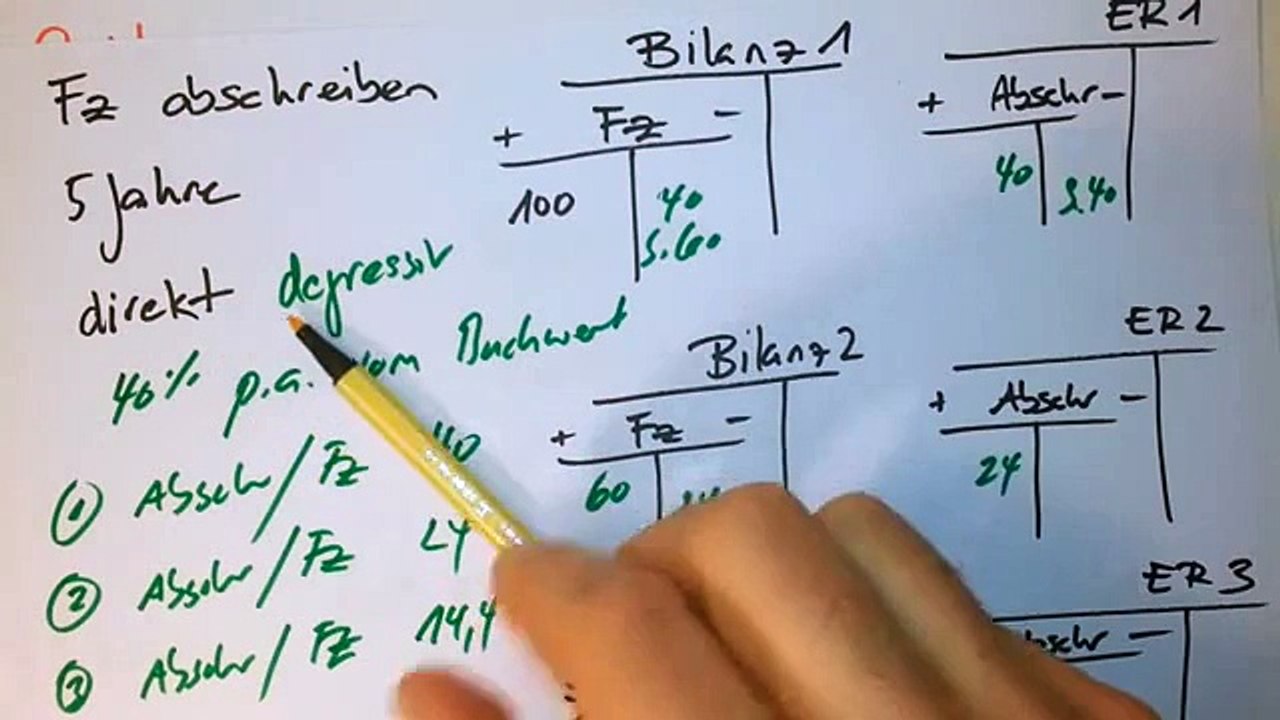 Fz abschreiben
5 Jahre
direkt degressiv
40% p.a. vom Buchwert
① Abschr/Fz 40
② Abschr/Fz 24
③ Abschr/Fz 14,4
Bilanz 1
+ Fz -
100 40
S.60
ER 1
+ Abschr -
40 S.40
Bilanz 2
+ Fz -
60
ER 2
+ Abschr -
24
ER 3
Abschr -